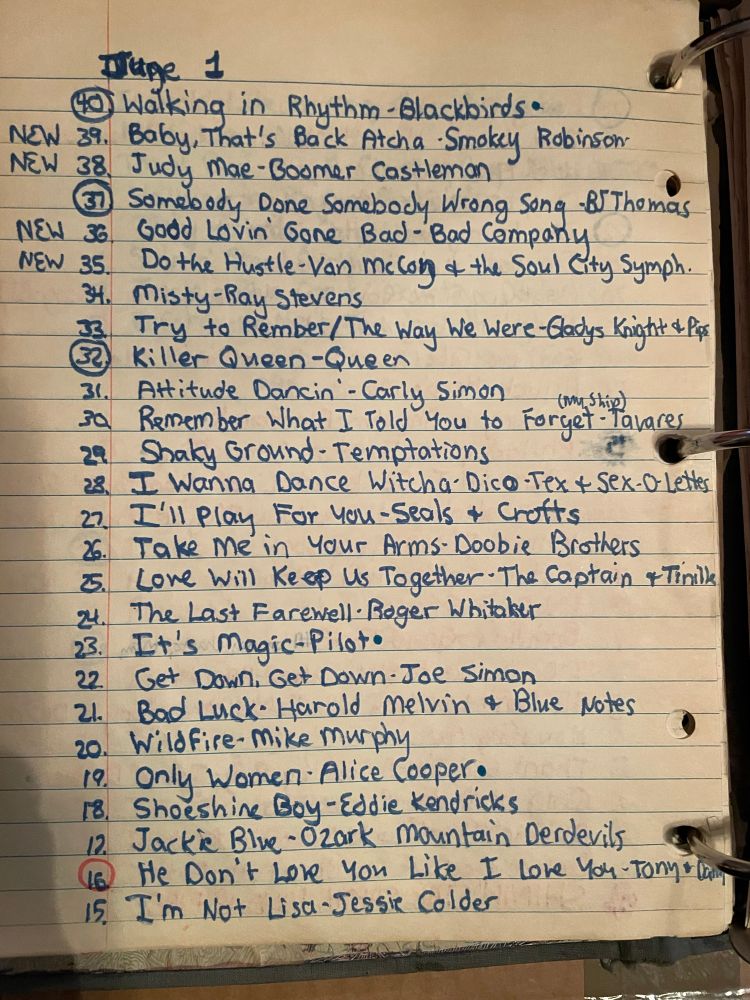 June 1
40 Walking in Rhythm-Blackbirds•
NEW 39. Baby, That's Back Atcha-Smokey Robinson
NEW 38. Judy Mae-Boomer Castleman
37 Somebody Done Somebody Wrong Song-BJ Thomas
NEW 36. Good Lovin' Gone Bad-Bad Company
NEW 35. Do the Hustle-Van McCoy & the Soul City Symph.
34. Misty-Ray Stevens
33. Try to Rember/The Way We Were-Gladys Knight & Pips
32 Killer Queen-Queen
31. Attitude Dancin'-Carly Simon
(My Ship)
30. Remember What I Told You to Forget-Tavares
29. Shaky Ground-Temptations
28. I Wanna Dance Witcha-Dico-Tex & Sex-O-Lettes
27. I'll Play For You-Seals & Crofts
26. Take Me in Your Arms-Doobie Brothers
25. Love Will Keep Us Together-The Captain & Tinille
24. The Last Farewell-Roger Whitaker
23. It's Magic-Pilot•
22. Get Down, Get Down-Joe Simon
21. Bad Luck-Harold Melvin & Blue Notes
20. Wildfire-Mike Murphy
19. Only Women-Alice Cooper•
18. Shoeshine Boy-Eddie Kendricks
17. Jackie Blue-Ozark Mountain Derdevils
16. He Don't Love You Like I Love You-Tony &
15. I'm Not Lisa-Jessie Colder